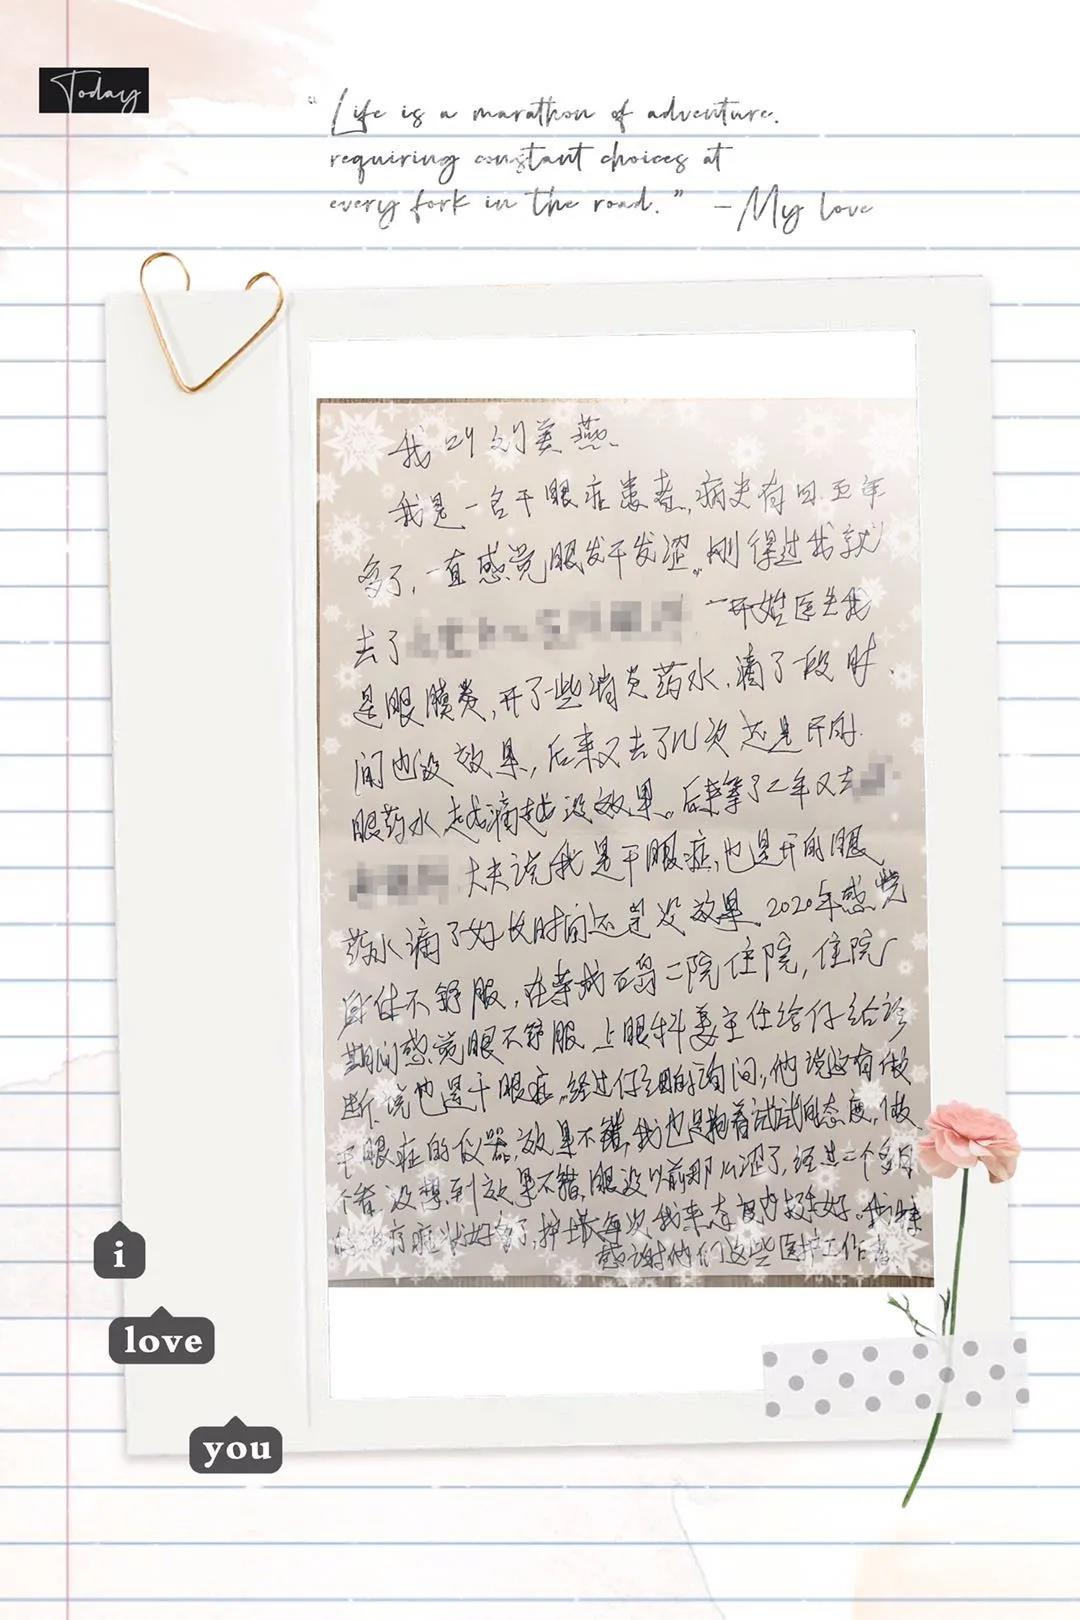 Today
“Life is a marathon of adventure.
requiring constant choices at
every fork in the road.” – My love
我叫刘美燕
我是一名干眼症患者,病史有四五年
多了,一直感觉眼发干发涩。刚得过我就
去了 一开始医生说
是眼膜炎,开了一些消炎药水,滴了一段时
间也没效果,后来又去了几次还是开的
眼药水越滴越没效果。后来等了二年又去
大夫说我是干眼症,也是开的眼
药水滴了好长时间还是没效果 2020年感觉
身体不舒服,在 二院住院,住院
期间感觉眼不舒服 上眼科姜主任给仔细诊
断说也是干眼症。经过仔细的询问,他说这有做
干眼症的仪器,效果不错,我也是抱着试试的态度,做
个看 没想到效果不错,眼没以前那么涩了,经过二个多月
的治疗症状好多了,护士每次我来态度也挺好。我
感谢他们这些医护工作者
i
love
you